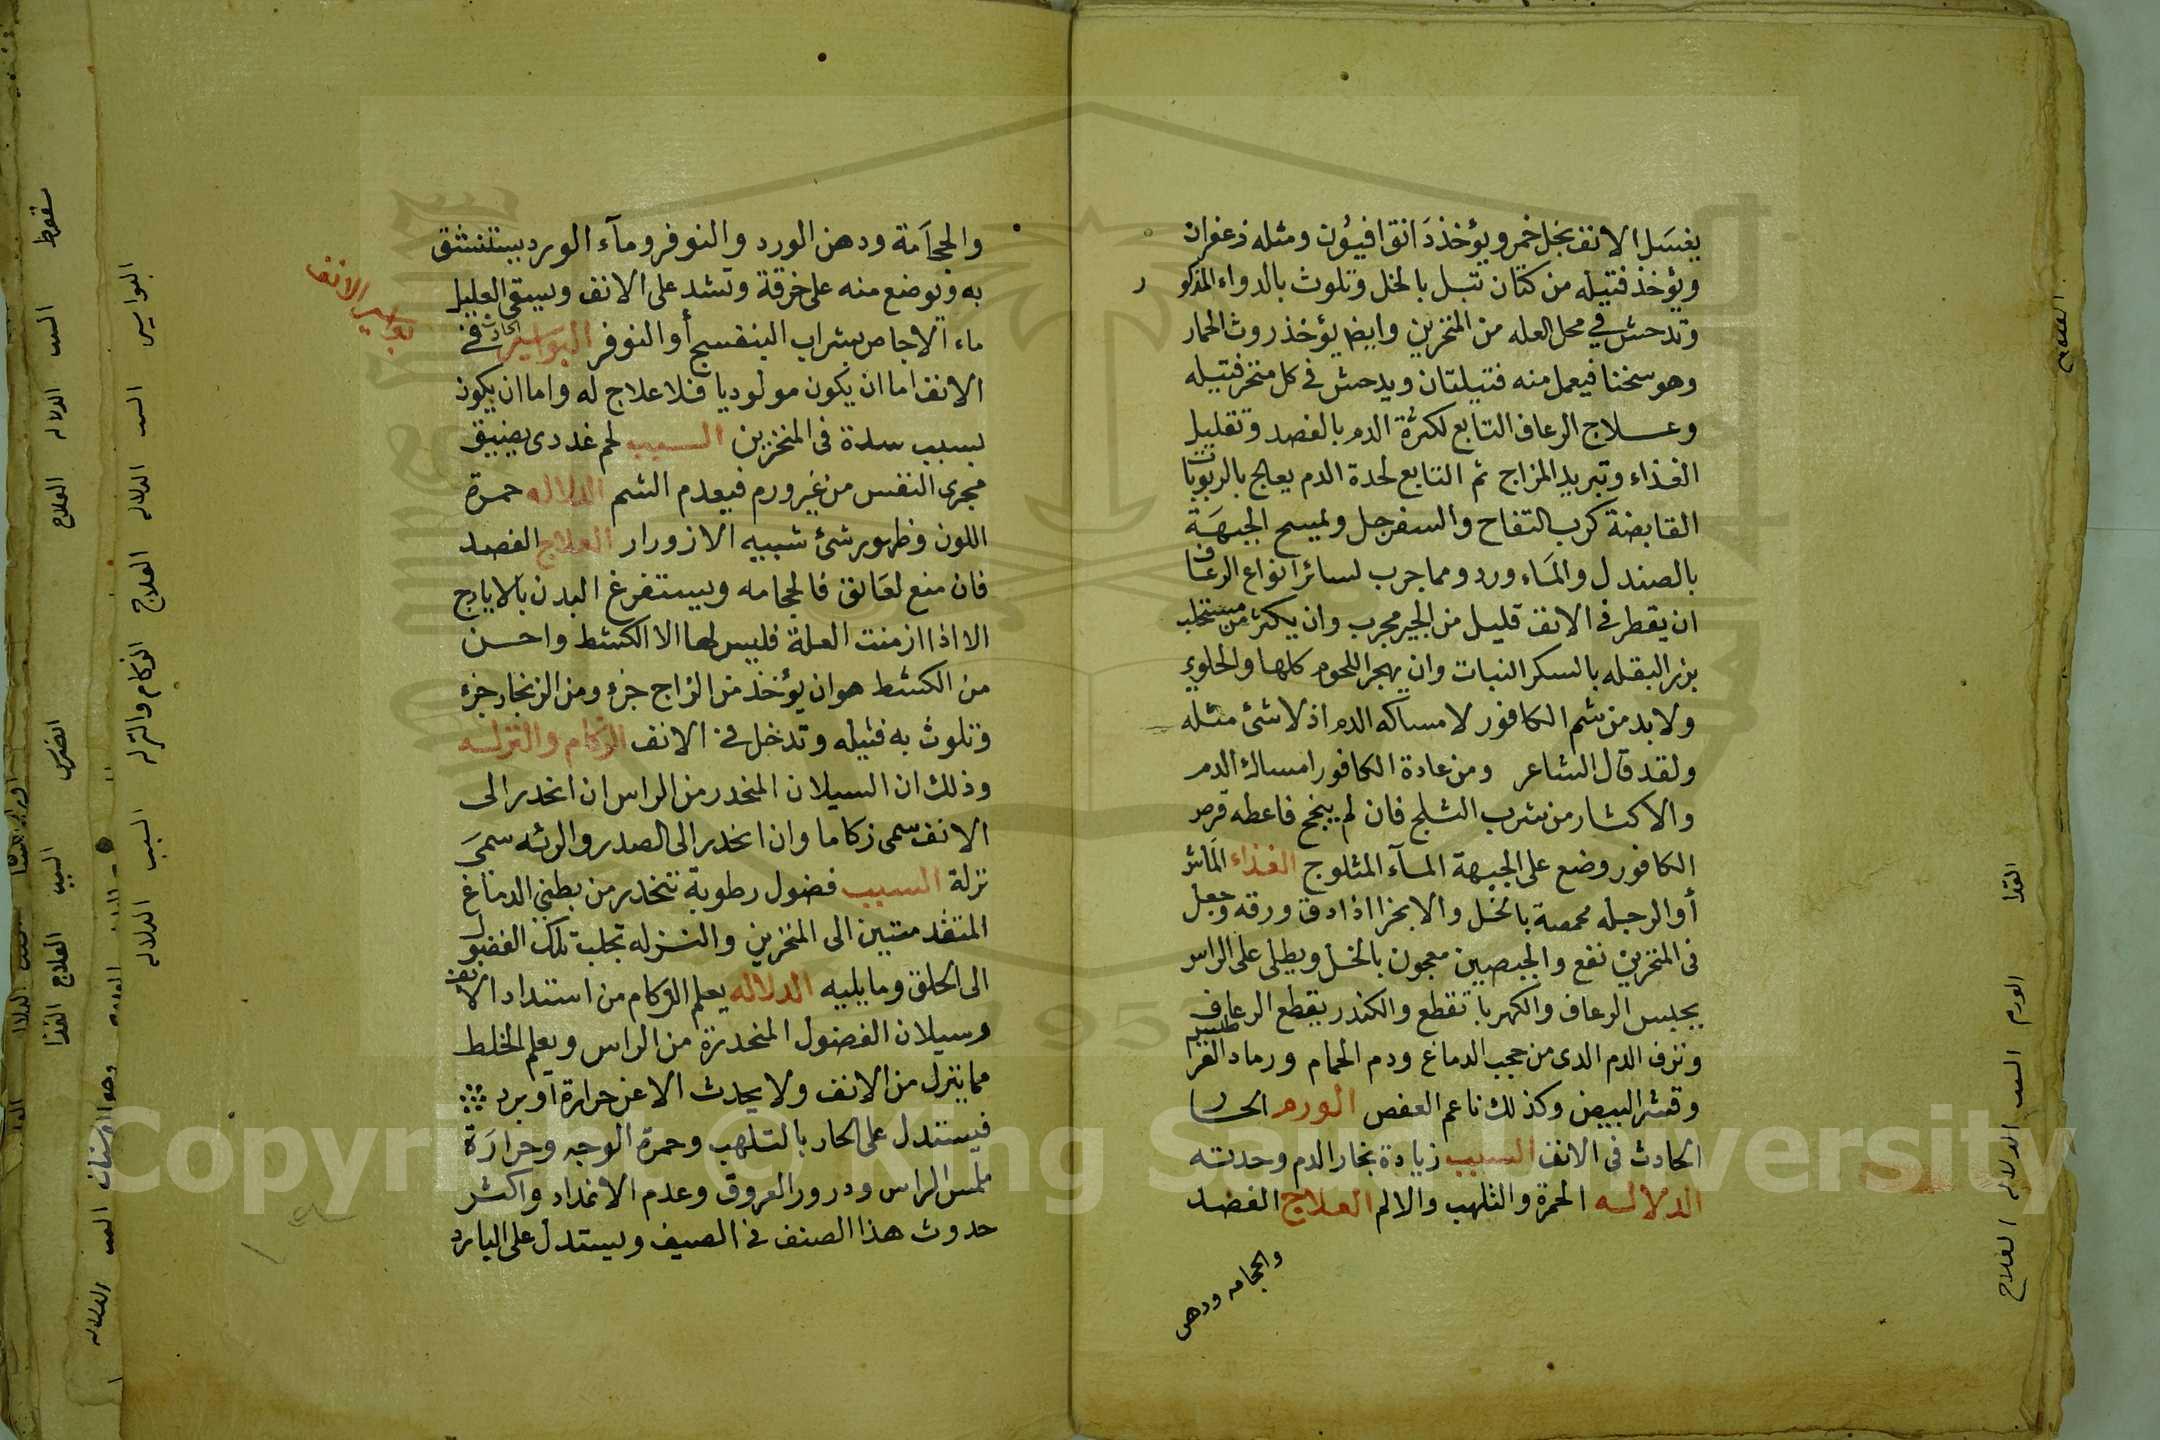 يغسل الانف بخل خمر ويؤخذ دانق افيون ومثله زعفران
ويؤخذ فتيله من كتان تبل بالخل وتلوث بالدواء المذكور
وتدحش في محل العله من المنخرين وايضا يؤخذ روث الحمار
وهو سخنا فيعمل منه فتيلتان ويدحش في كل منخر فتيله
وعلاج الرعاف التابع لكثرة الدم بالفصد وتقليل
الغذاء وتبريد المزاج ثم التابع لحدة الدم يعالج بالربوبات
القابضة كرب التفاح والسفرجل ويمسح الجبهة
بالصندل والماء ورد ومما جرب لسائر انواع الرعاف
ان يقطر في الانف قليل من الجير مجرب وان يكثر من مستحلب
بزر البقله بالسكر النبات وان يهجر اللحوم كلها والحلوي
ولا بد من شم الكافور لامساكه الدم اذ لا شئ مثله
ولقد قال الشاعر ومن عادة الكافور امساك الدم
والاكثار من شرب الثلج فان لم ينجح فاعطه قرص
الكافور وضع على الجبهة المآء المثلوج الغذاء الماش
أو الرجله محمصة بالخل والابخرا اذا دق ورقه وجعل
في المنخرين نفع والجبصين معجون بالخل ويطلى على الراس
يحبس الرعاف والكهربا تقطع والكندر يقطع الرعاف
ونزف الدم الدى من حجب الدماغ ودم الحمام ورماد القراطيس
وقشر البيض وكذلك ناعم العفص الورم الحار
الحادث في الانف السبب زيادة بخار الدم وحدته
الدلاله الحمرة والتلهب والالم العلاج الفصد
والحجامه ودهن
والحجامة ودهن الورد والنوفر ومآء الورد يستنشق
به ويوضع منه على خرقة ويشد على الانف ويسقى العليل
ماء الاجاص بشراب البنفسج أو النوفر البواسير الحادث في
بواسير الانف
الانف اما ان يكون مولوديا فلا علاج له واما ان يكون
بسبب سدة في المنخرين السبب لحم غددى يضيق
مجرى النفس من غير ورم فيعدم الشم الدلاله حمرة
اللون وظهور شئ شبيه الازورار العلاج الفصد
فان منع لعائق فالحجامه ويستفرغ البدن بالايارج
الا اذا ازمنت العلة فليس لها الا الكشط واحسن
من الكشط هو ان يؤخذ من الزاج جزء ومن الزنجار جزء
وتلوث به فتيله وتدخل في الانف الزكام والنزله
وذلك ان السيلان المنحدر من الراس ان انحدر الى
الانف سمى زكاما وان انحدر الى الصدر والرئه سمى
نزلة السبب فضول رطوبة تنحدر من بطني الدماغ
المتقدمتين الى المنخرين والنزله تجلب تلك الفضول
الى الحلق وما يليه الدلاله يعلم الزكام من استداد الانف
وسيلان الفضول المنحدرة من الراس ويعلم الخلط
مما ينزل من الانف ولا يحدث الا عن حرارة أو برد
فيستدل على الحار بالتلهب وحمرة الوجه وحرارة
ملمس الراس ودرور العروق وعدم الانمداد واكثر
حدوث هذا الصنف في الصيف ويستدل على البارد
البواسير السبب الدلاله العلاج الزكام والنزله السبب الدلاله
سقوط السبب الدلاله العلاج الضرس السبب العلاج الغذا
الغذا الورم السبب الدلاله العلاج
Copyright © King Saud University
1957